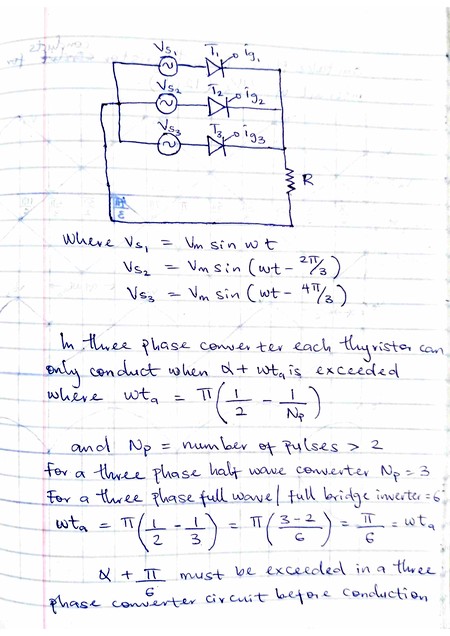 Vs₁ T₁ ig₁
Vs₂ T₂ ig₂
Vs₃ T₃ ig₃
R
Where Vs₁ = Vm sin wt
Vs₂ = Vm sin (wt - 2π/3)
Vs₃ = Vm sin (wt - 4π/3)
In three phase converter each thyristor can
only conduct when α + wta is exceeded
where wta = π(1/2 - 1/Np)
and Np = number of pulses > 2
for a three phase half wave converter Np = 3
For a three phase full wave/full bridge inverter = 6
wta = π(1/2 - 1/3) = π(3-2/6) = π/6 = wta
α + π/6 must be exceeded in a three
phase converter circuit before conduction